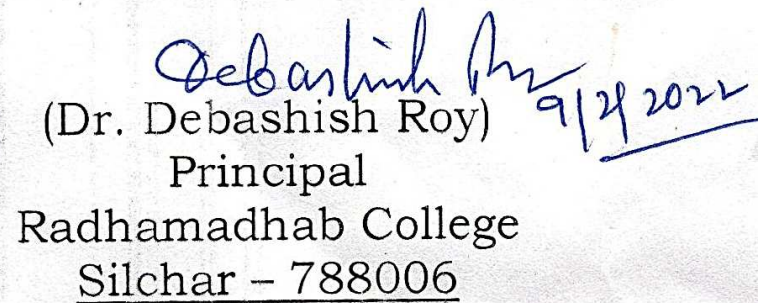 Debashish Roy
9/2/2022
(Dr. Debashish Roy)
Principal
Radhamadhab College
Silchar – 788006